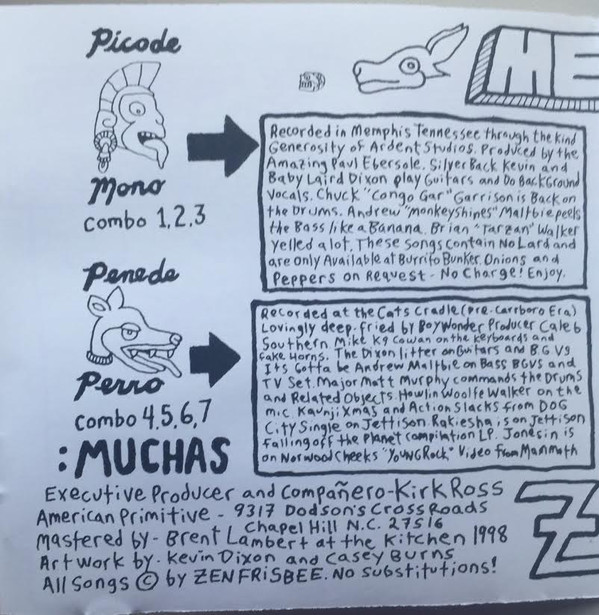 Picode
Mono
combo 1,2,3
ME
Recorded in Memphis Tennessee through the kind
Generosity of Ardent Studios. Produced by the
Amazing Paul Ebersole. Silver Back Kevin and
Baby Laird Dixon play Guitars and Do BackGround
Vocals. Chuck "Congo Gar" Garrison is Back on
the Drums. Andrew "monkeyshines" Maltbie peels
the Bass like a Banana. Brian "Tarzan" Walker
Yelled a lot. These Songs Contain No Lard and
are only Available at Burrito Bunker. Onions and
Peppers on Request - No Charge! Enjoy.
Penede
Perro
combo 4,5,6,7
Recorded at the Cats Cradle (pre-Carrboro Era)
Lovingly deep-fried by Boy Wonder Producer Caleb
Southern Mike K9 Cowan on the Keyboards and
fake Horns. The Dixon litter on Guitars and B.G V9
Its Gotta be Andrew Maltbie on Bass BGVS and
TV Set. Major Matt Murphy commands the Drums
and Related Objects. Howlin Woolfe Walker on the
mic Kaunji Xmas and Action Slacks from DOG
City Single on Jettison. Rakiesha is on Jettison
falling off the Planet compilation LP. Jonesin is
on Norwood Cheeks "YounG Rock" Video from Mammoth
:MUCHAS
Executive Producer and Compañero-Kirk Ross
American Primitive - 9317 Dodson's CrossRoads
Chapel Hill N.C. 27516
Mastered by - Brent Lambert at the Kitchen 1998
Artwork by - Kevin Dixon and Casey Burns
All Songs © by ZEN FRISBEE. No substitutions!
Z